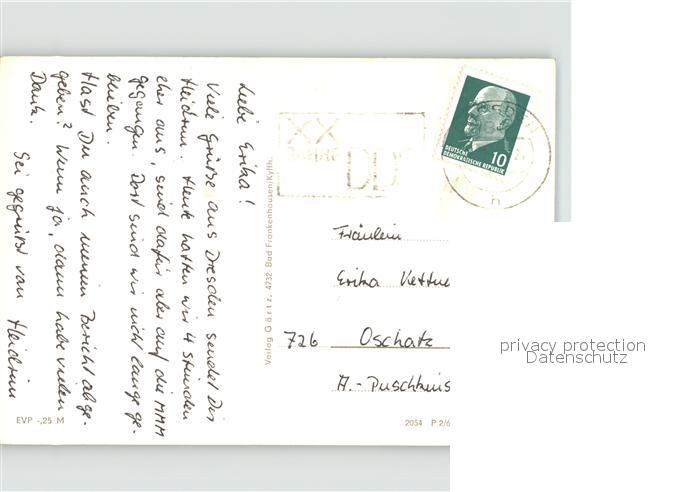 Liebe Erika!
Viele Grüße aus Dresden sendet Dir
Heidrun. Heute hatten wir 4 Stunden
eher aus, sind dafür aber auf die MMM
gegangen. Dort sind wir nicht lange ge-
blieben.
Hast Du auch meinen Bericht abge-
geben? Wenn ja, dann habe vielen
Dank.
Sei gegrüßt von Heidrun
EVP -,25 M
Verlag Görtz, 4732 Bad Frankenhausen/Kyffh.
XX
JAHRE
DDR
DEUTSCHE
DEMOKRATISCHE REPUBLIK
10
Fräulein
Erika
726 Oschatz
A.-Puschkins
2054 P 2/6
privacy protection
Datenschutz